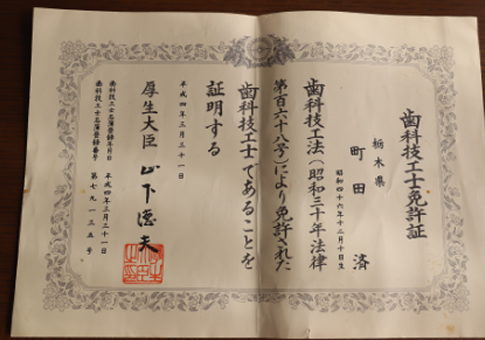 歯科技工士免許証
栃木県
町田 済
昭和四十六年十二月十日生
歯科技工法(昭和三十年法律
第百六十八号)により免許された
歯科技工士であることを
証明する
平成四年三月三十一日
厚生大臣 山下徳夫
歯科技工士名簿登録年月日 平成四年三月三十一日
歯科技工士名簿登録番号 第七九一三五号